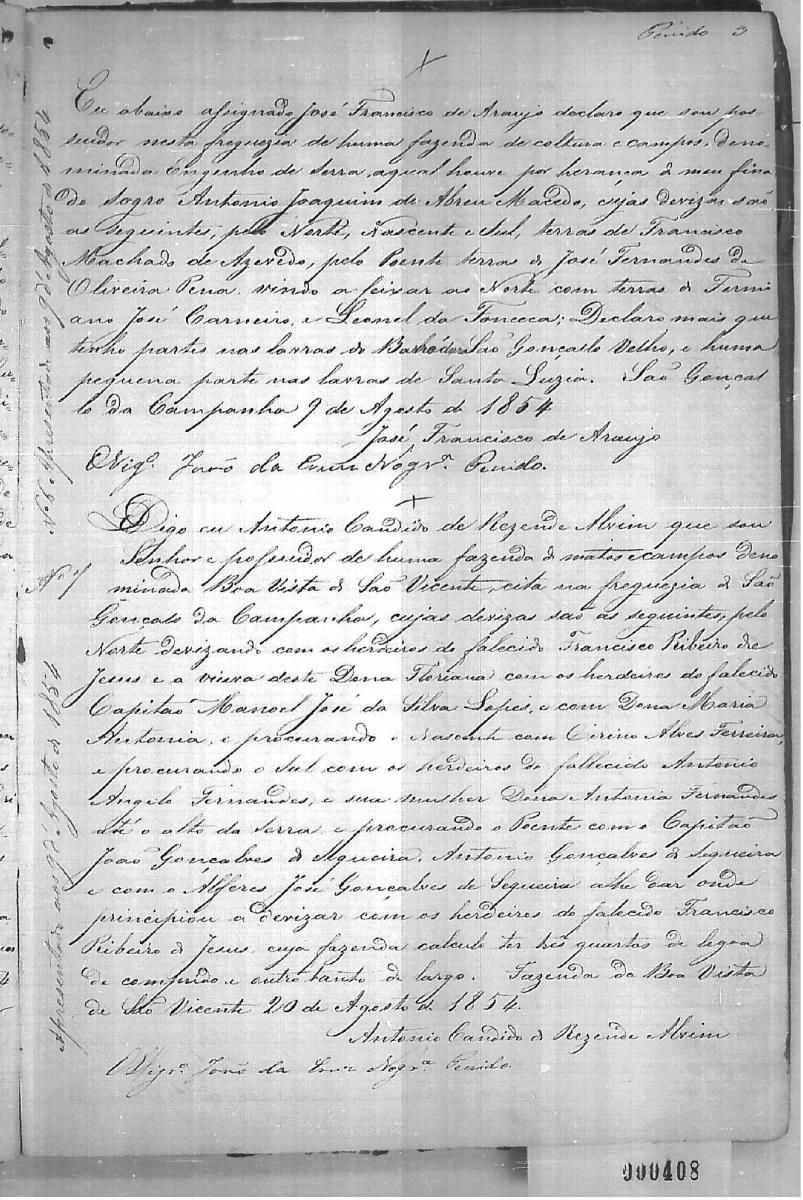 Penido 3
Eu abaixo assignado José Francisco de Araujo declaro que sou pos-
suidor nesta freguezia de huma fazenda de coltura e campos, deno-
minada Engenho de Serra, aqual houve por herança de meu fina
do sogro Antonio Joaquim de Abreu Macedo, cujas devizas saõ
as seguintes, pelo Norte, Nascente e Sul, terras de Francisco
Machado de Azevedo, pelo Poente terras de José Fernandes de
Oliveira Pena vindo a feixar ao Norte com terras de Firmi
ano José Carneiro, e Leonel da Fonceca; Declaro mais que
tenho partes nas lavras do São Gonçallo Velho, e huma
pequena parte nas lavras de Santa Luzia. São Gonçal
lo da Campanha 9 de Agosto de 1854
José Francisco de Araujo
O Vigº. da Nogrª. Penido.
Nº 6 Apresentado aos 9 d'Agosto de 1854
Digo eu Antonio Candido de Rezende Alvim que sou
Senhor e possuidor de huma fazenda de matos e campos deno
Nº 7
minada Boa Vista de São Vicente, cita na freguezia de São
Gonçalo da Campanha, cujas devizas são as seguintes, pelo
Norte devizando com os herdeiros do falecido Francisco Ribeiro de
Jesus e a viuva deste Dona Floriana com os herdeiros do falecido
Capitaõ Manoel José da Silva Lopes, e com Dona Maria
Antonia, e procurando o Nascente com Cirino Alves Ferreira,
e procurando o Sul com os herdeiros do fallecido Antonio
Angelo Fernandes, e sua mulher Dona Antonia Fernandes
até o alto da serra, e procurando o Poente com o Capitaõ
Joaõ Gonçalves de Siqueira, Antonio Gonçalves de Sequeira
e com o Alferes José Gonçalves de Sequeira athe dar onde
principiou a devizar com os herdeiros do falecido Francisco
Ribeiro de Jesus, cuja fazenda calculo ter três quartos de legoa
de comprido e outro tanto de largo. Fazenda da Boa Vista
de São Vicente 20 de Agosto de 1854.
Antonio Candido de Rezende Alvim
O Vigrº. da Nogrª Penido.
Apresentado aos d'Agosto de 1854
000408